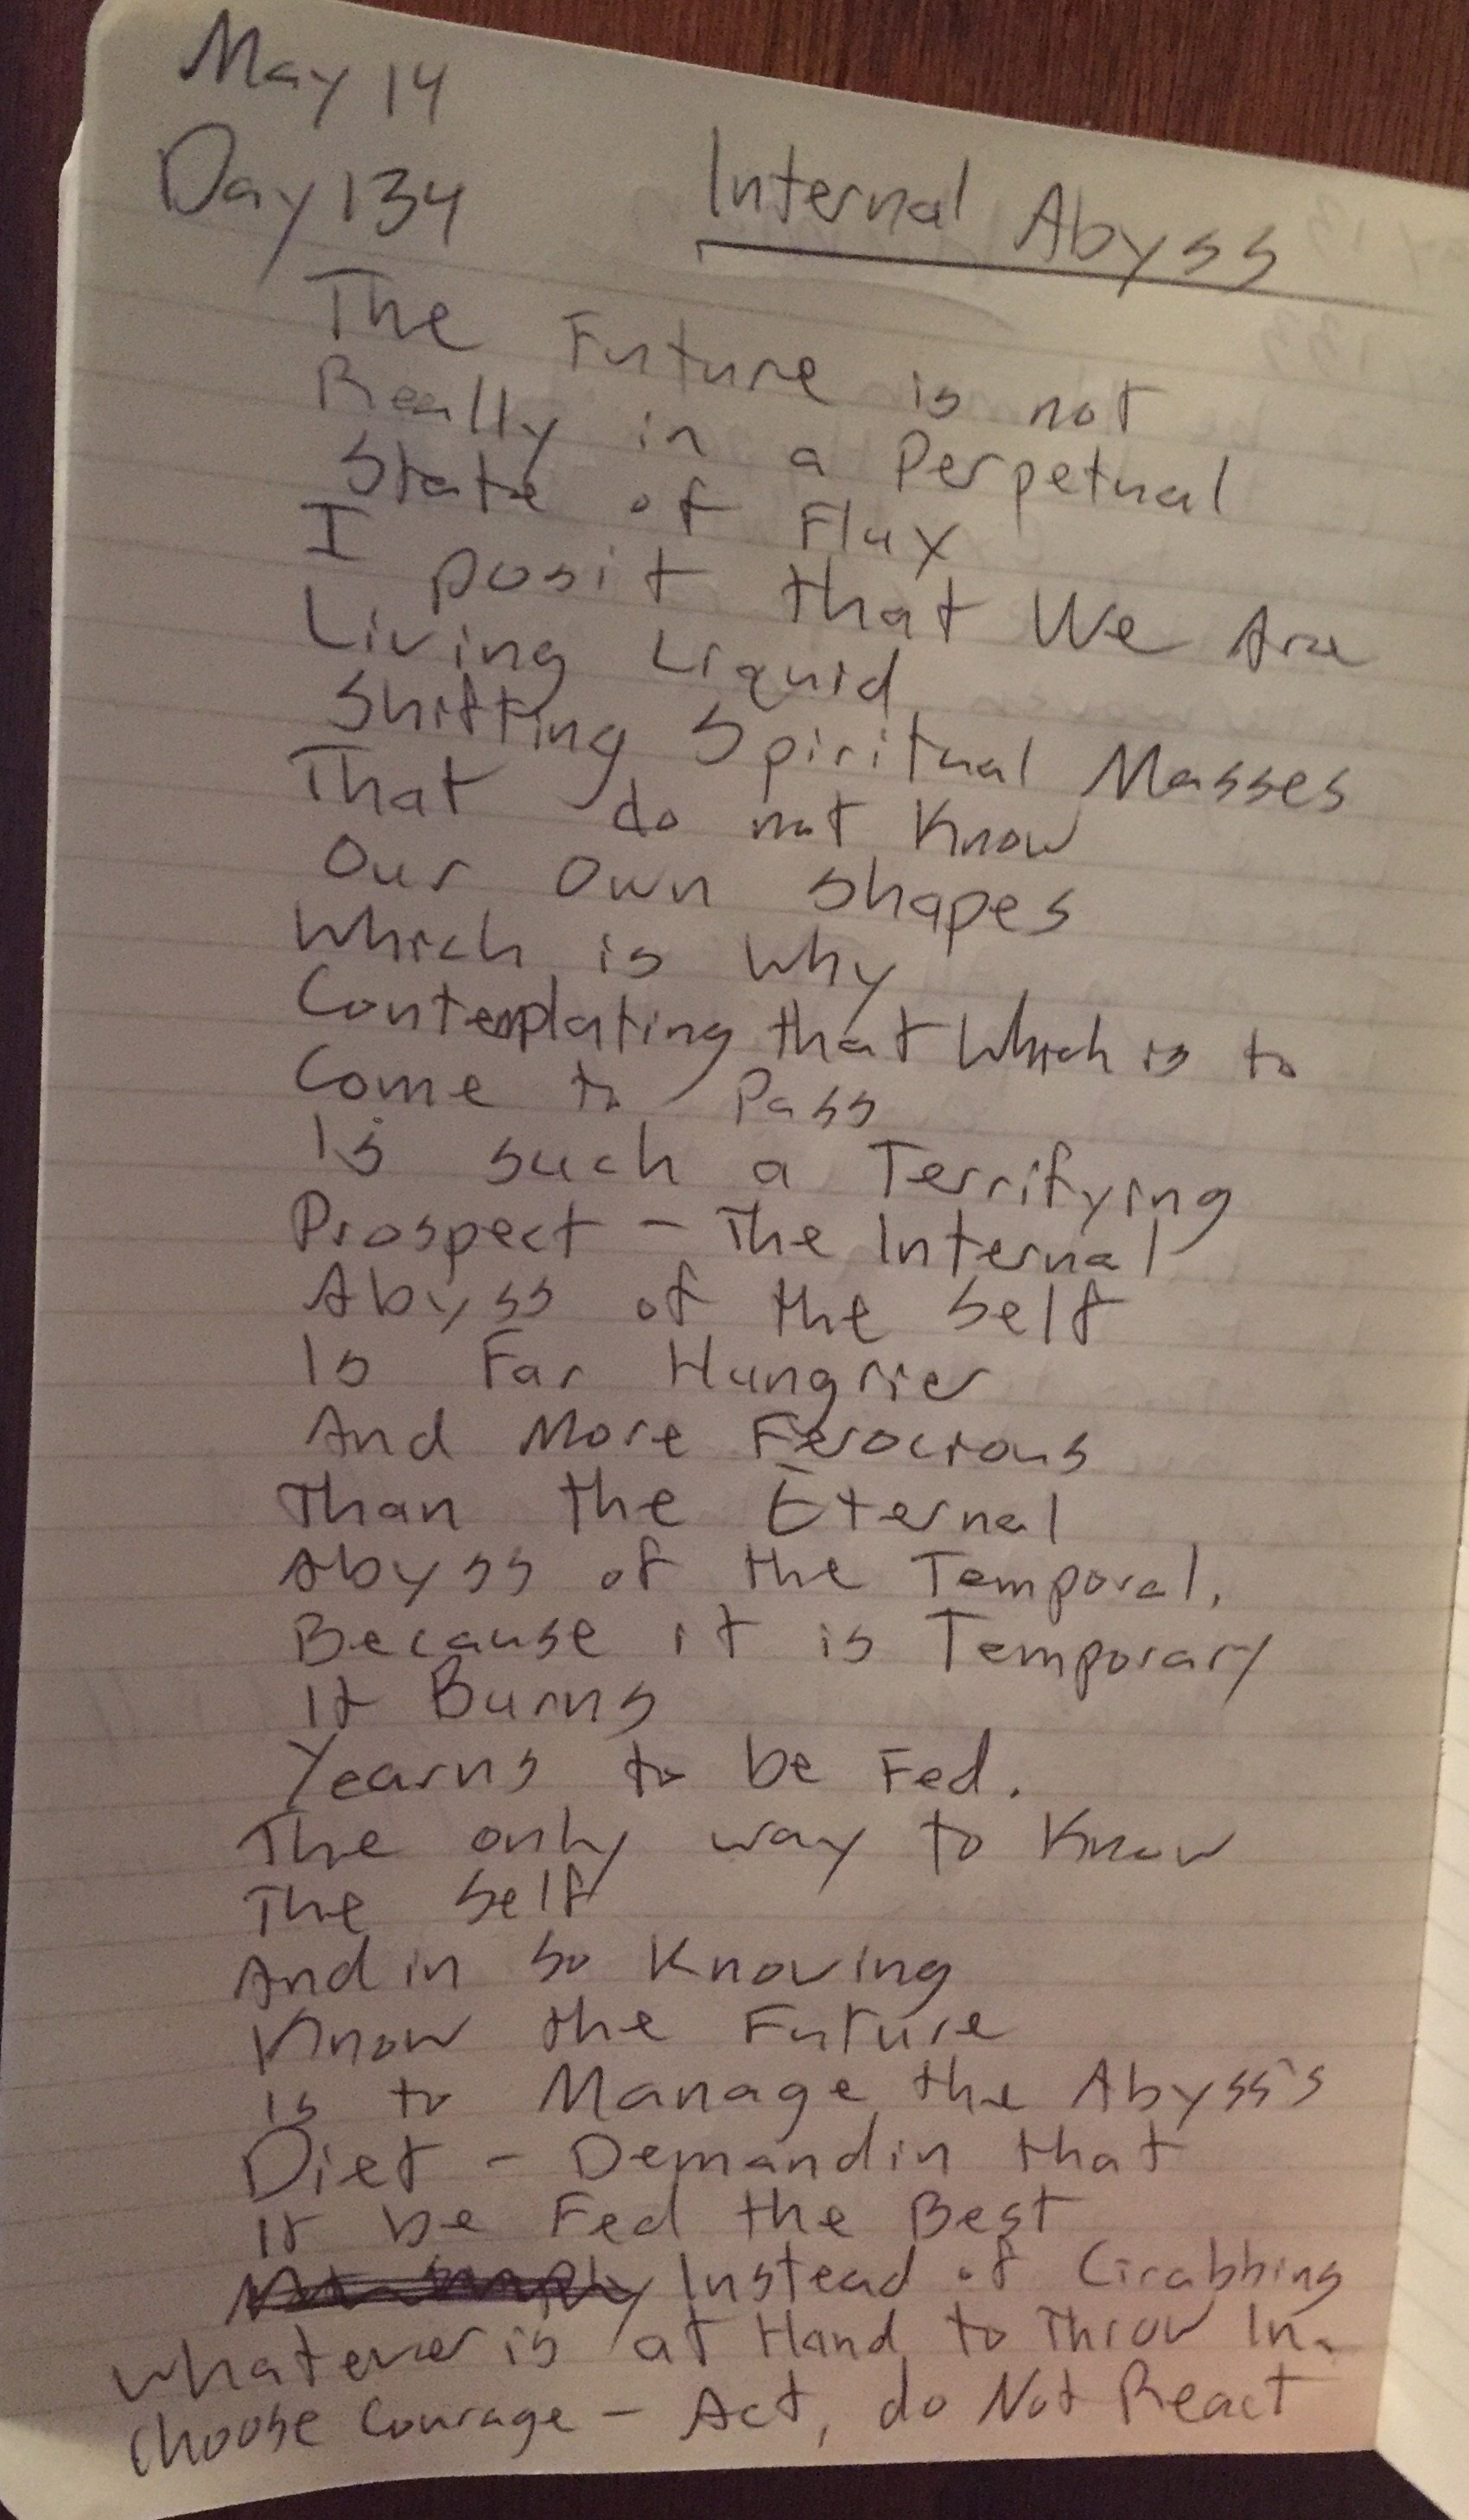 May 14
Day 134
Internal Abyss
The Future is not
Really in a Perpetual
State of Flux
I posit that We Are
Living Liquid
Shifting Spiritual Masses
That do not Know
Our Own Shapes
Which is Why
Contemplating that Which is to
Come to Pass
Is such a Terrifying
Prospect - The Internal
Abyss of the Self
Is Far Hungrier
And More Ferocious
Than the Eternal
Abyss of the Temporal,
Because it is Temporary
it Burns
Yearns to be Fed.
The only way to Know
The Self
And in so Knowing
Know the Future
is to Manage the Abyss's
Diet - Demandin that
it be Fed the Best
Instead of Grabbing
whatever is at Hand to Throw In.
Choose Courage - Act, do Not React